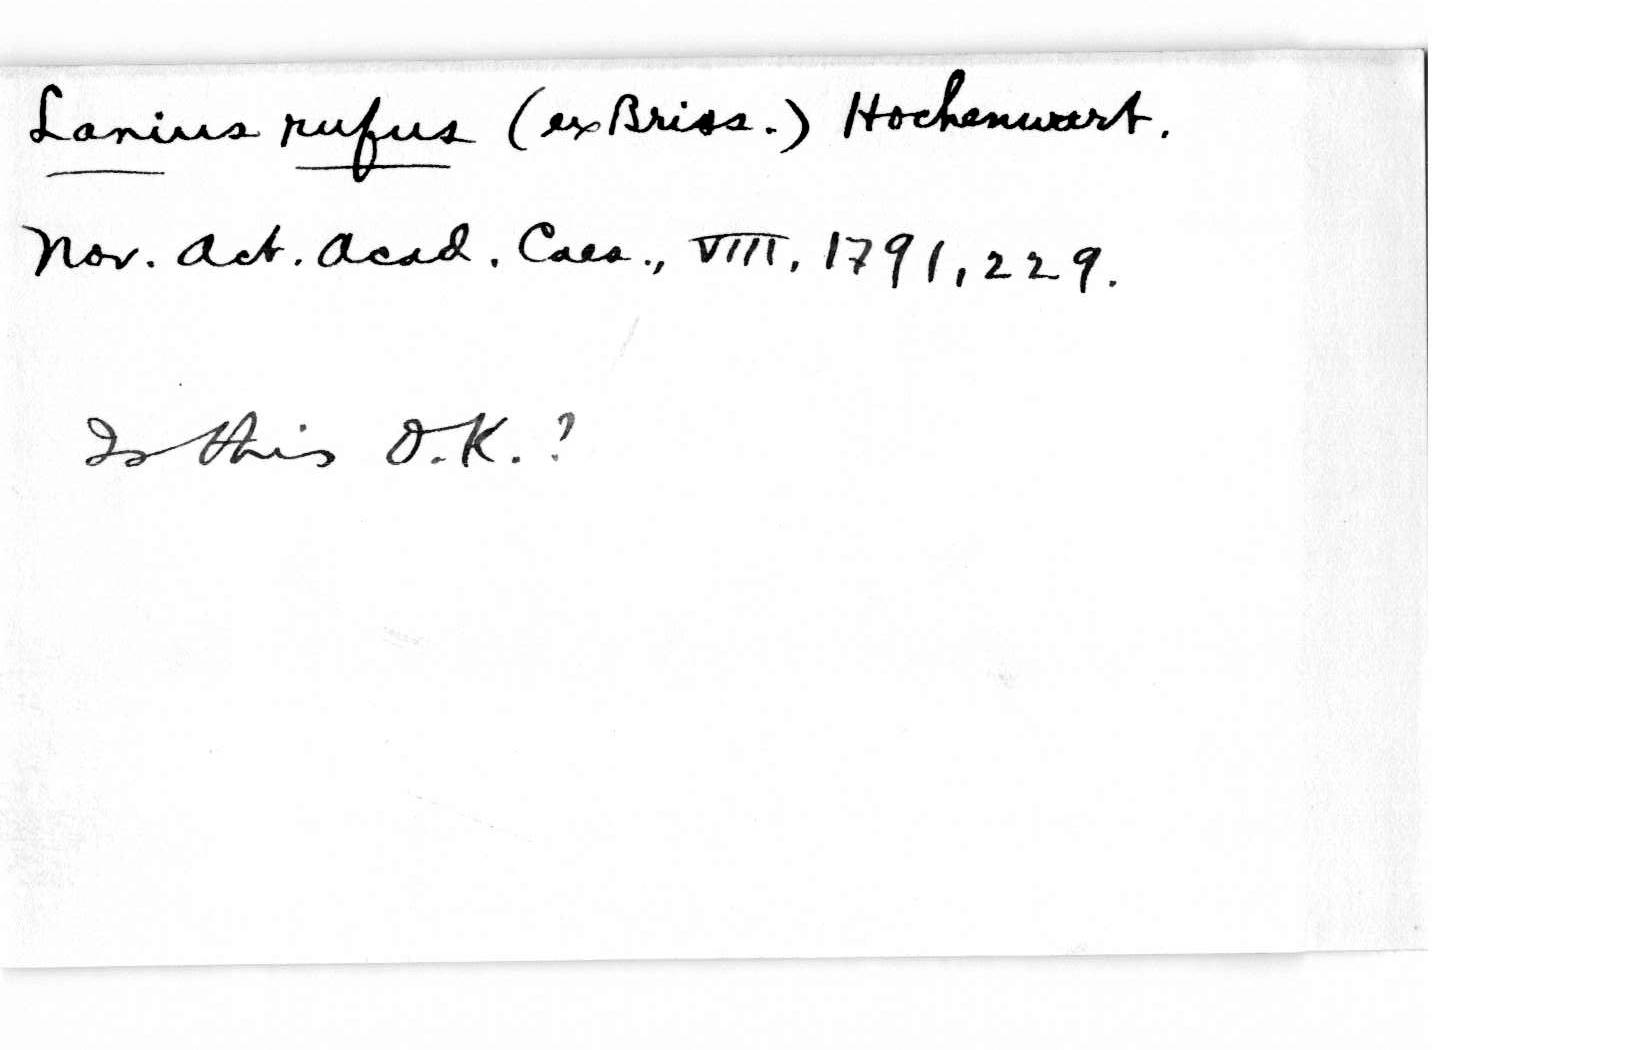 Lanius rufus (ex Briss.) Hochenwart.
Nov. Act. Acad. Caes., VIII, 1791, 229.
Is this O.K.?